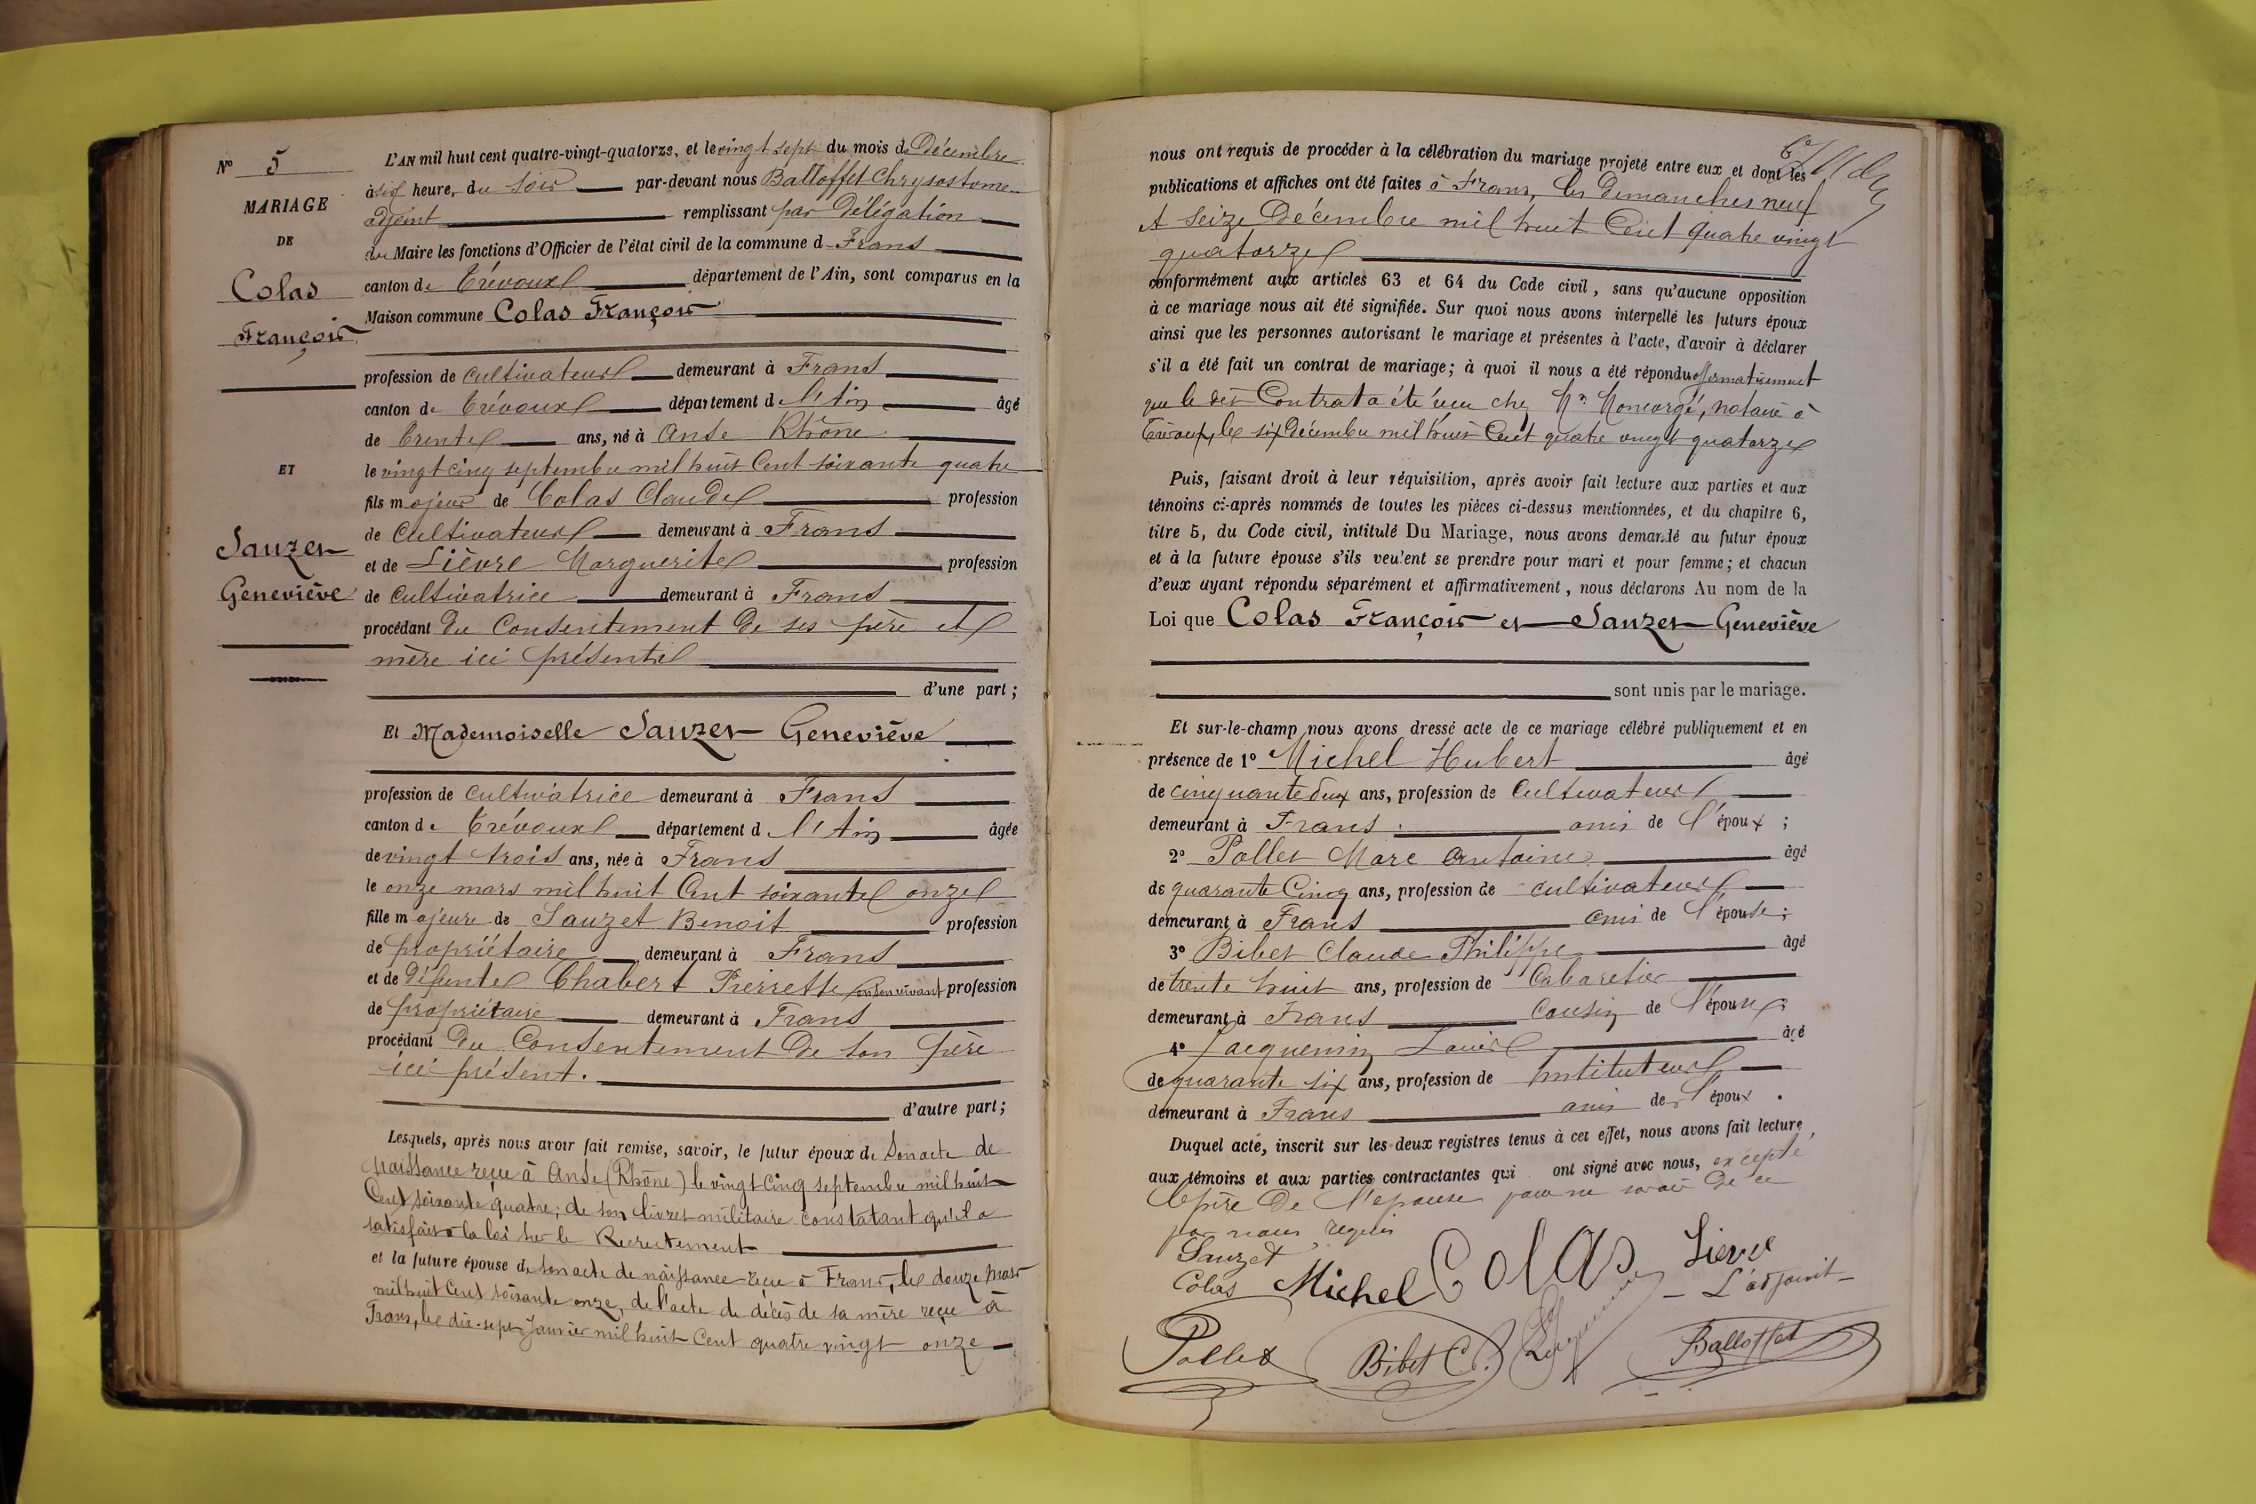 N° 5
MARIAGE
DE
Colas
François
ET
Sauzet
Geneviève
L'AN mil huit cent quatre-vingt-quatorze, et le vingt sept du mois de Décembre
à six heure, du soir par-devant nous Balloffet Chrysostome
adjoint remplissant par Délégation
du Maire les fonctions d'Officier de l'état civil de la commune d Frans
canton de Trévoux département de l'Ain, sont comparus en la
Maison commune Colas François
profession de cultivateur demeurant à Frans
canton de Trévoux département d l'Ain âgé
de trente ans, né à Anse Rhône
le vingt cinq septembre mil huit Cent soixante quatre
fils majeur de Colas Claude profession
de cultivateur demeurant à Frans
et de Lièvre Marguerite profession
de cultivatrice demeurant à Frans
procédant du Consentement de ses père et
mère ici présents
d'une part;
Et Mademoiselle Sauzet Geneviève
profession de cultivatrice demeurant à Frans
canton de Trévoux département d l'Ain âgée
de vingt trois ans, née à Frans
le onze mars mil huit Cent soixante onze
fille majeure de Sauzet Benoit profession
de propriétaire demeurant à Frans
et de défunte Chabert Pierrette en son vivant profession
de propriétaire demeurant à Frans
procédant du Consentement de son père
ici présent.
d'autre part;
Lesquels, après nous avoir fait remise, savoir, le futur époux de son acte de
naissance reçu à Anse (Rhône) le vingt cinq septembre mil huit
Cent soixante quatre; de son livret militaire constatant qu'il a
satisfait à la loi sur le Recrutement
et la future épouse de son acte de naissance reçu à Frans, le douze mars
mil huit Cent soixante onze, de l'acte de décès de sa mère reçu à
Frans, le dix-sept Janvier mil huit Cent quatre vingt onze
nous ont requis de procéder à la célébration du mariage projeté entre eux et dont les
publications et affiches ont été faites à Frans, les Dimanches neuf
et seize Décembre mil huit Cent quatre vingt
quatorze
conformément aux articles 63 et 64 du Code civil, sans qu'aucune opposition
à ce mariage nous ait été signifiée. Sur quoi nous avons interpellé les futurs époux
ainsi que les personnes autorisant le mariage et présentes à l'acte, d'avoir à déclarer
s'il a été fait un contrat de mariage; à quoi il nous a été répondu affirmativement
que le dit Contrat a été reçu chez Mr. Moncorgé, notaire à
Trévoux, le six Décembre mil huit Cent quatre vingt quatorze
Puis, faisant droit à leur réquisition, après avoir fait lecture aux parties et aux
témoins ci-après nommés de toutes les pièces ci-dessus mentionnées, et du chapitre 6,
titre 5, du Code civil, intitulé Du Mariage, nous avons demandé au futur époux
et à la future épouse s'ils veulent se prendre pour mari et pour femme; et chacun
d'eux ayant répondu séparément et affirmativement, nous déclarons Au nom de la
Loi que Colas François et Sauzet Geneviève
sont unis par le mariage.
Et sur-le-champ nous avons dressé acte de ce mariage célébré publiquement et en
présence de 1° Michel Hubert âgé
de cinquante deux ans, profession de cultivateur
demeurant à Frans ami de l'époux;
2° Pollet Marc Antoine âgé
de quarante Cinq ans, profession de cultivateur
demeurant à Frans ami de l'épouse;
3° Bibet Claude Philippe âgé
de trente huit ans, profession de Cabaretier
demeurant à Frans cousin de l'époux;
4° Jacquemin Louis âgé
de quarante six ans, profession de Instituteur
demeurant à Frans ami de l'époux.
Duquel acte, inscrit sur les deux registres tenus à cet effet, nous avons fait lecture
aux témoins et aux parties contractantes qui ont signé avec nous, excepté
le père de l'épouse pour ne savoir de ce
par nous requis
Sauzet
Colas Michel Colas Lievre
L'adjoint
Pollet Bibet C. Jacquemin Balloffet